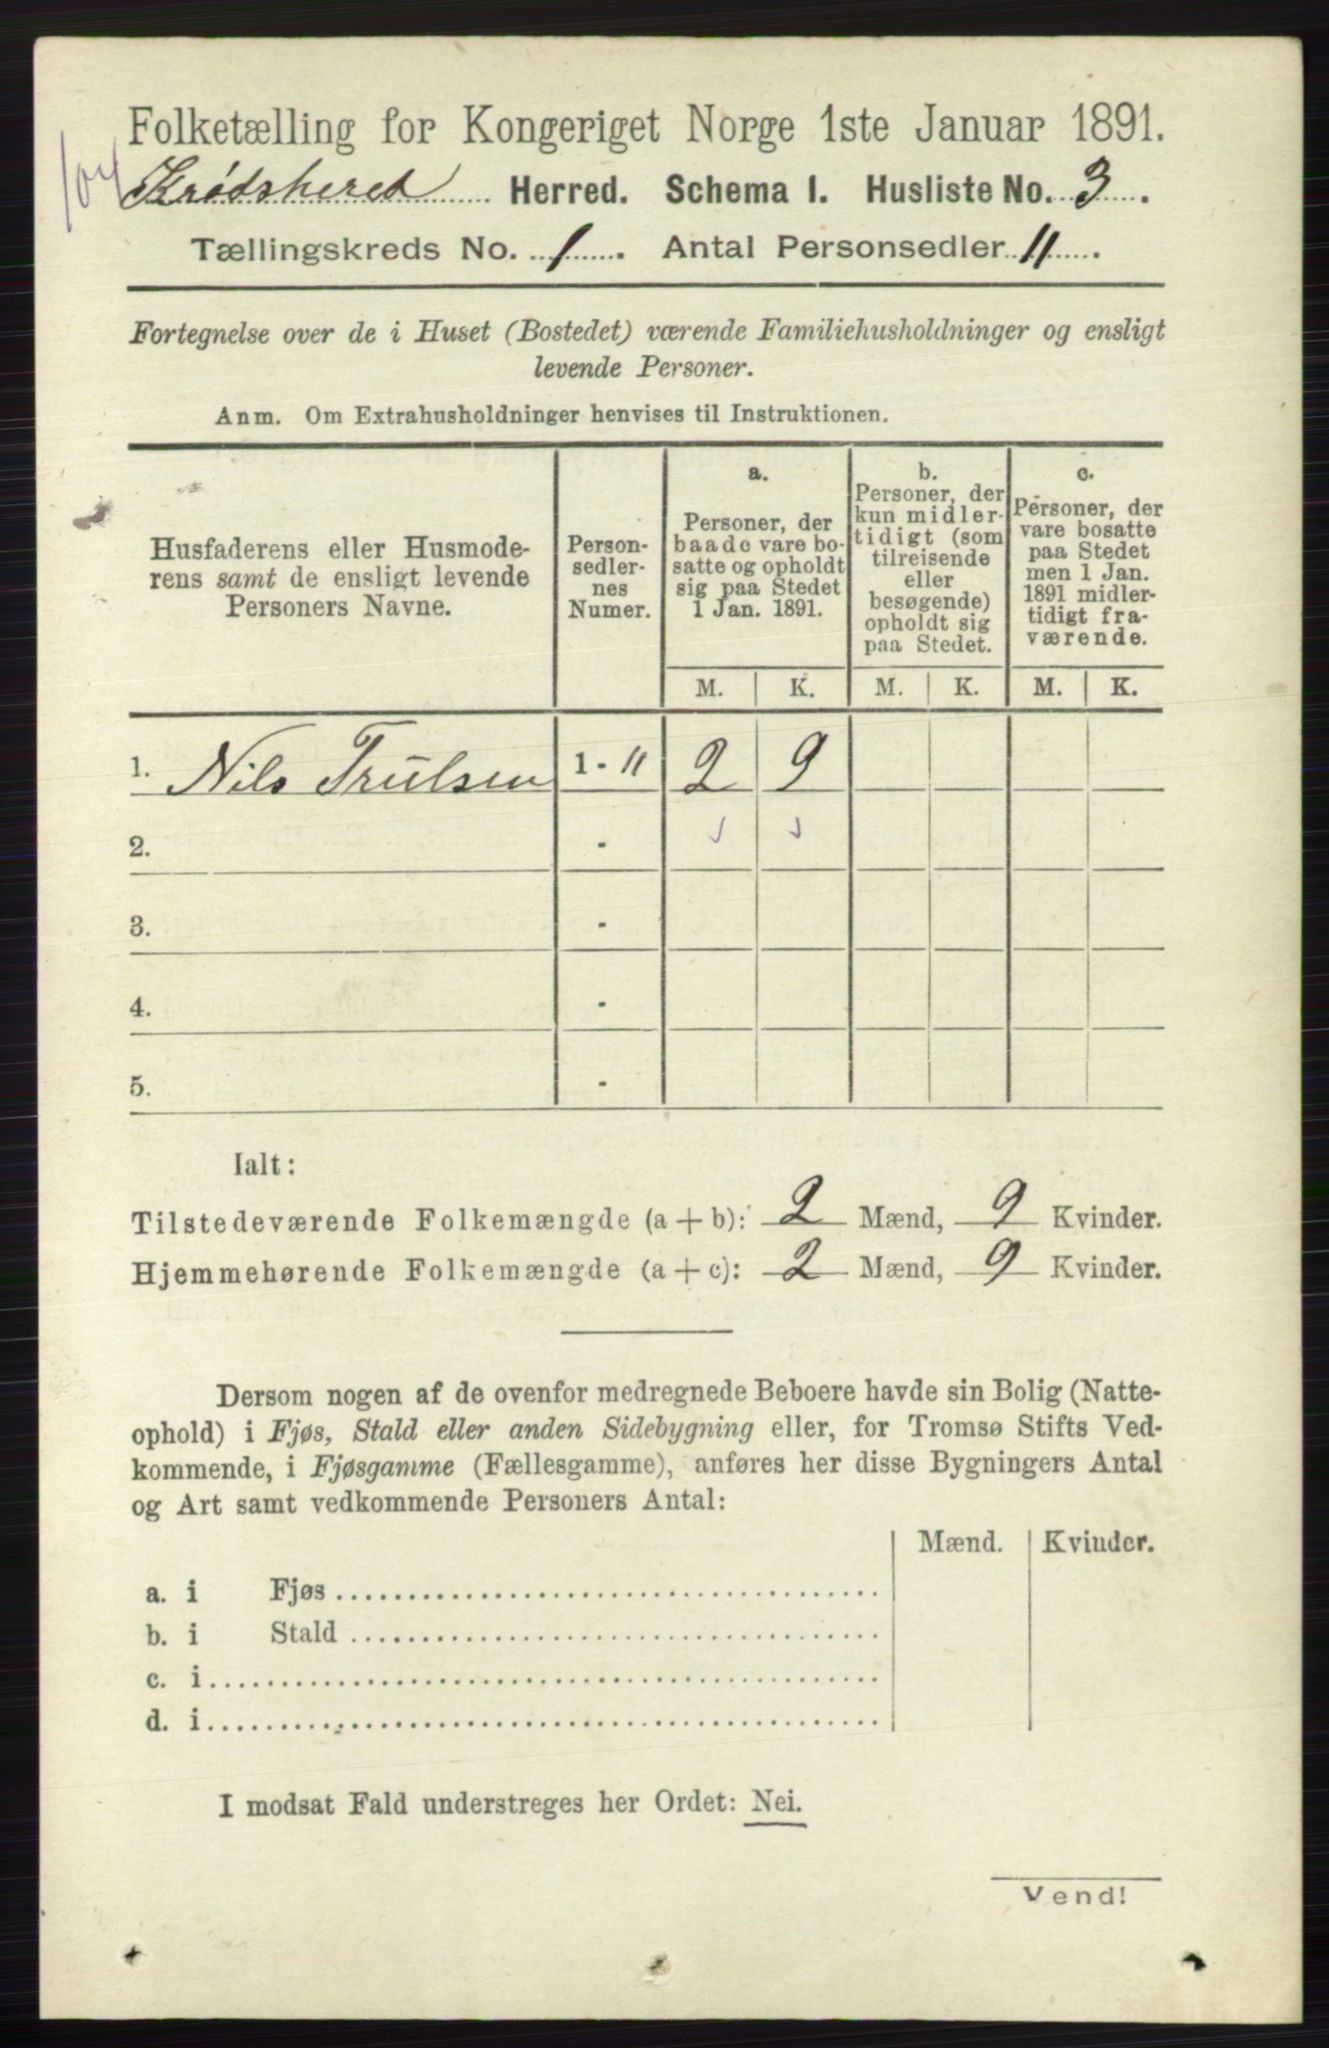 Folketælling for Kongeriget Norge 1ste Januar 1891.
104
Krødshered Herred. Schema I. Husliste No. 3.
Tællingskreds No. 1. Antal Personsedler 11.
Fortegnelse over de i Huset (Bostedet) værende Familiehusholdninger og ensligt
levende Personer.
Anm. Om Extrahusholdninger henvises til Instruktionen.
Husfaderens eller Husmode-
rens samt de ensligt levende
Personers Navne.
Person-
sedler-
nes
Numer.
a.
Personer, der
baade vare bo-
satte og opholdt
sig paa Stedet
1 Jan. 1891.
b.
Personer, der
kun midler-
tidigt (som
tilreisende
eller
besøgende)
opholdt sig
paa Stedet.
c.
Personer, der
vare bosatte
paa Stedet
men 1 Jan.
1891 midler-
tidigt fra-
værende.
M. K. M. K. M. K.
1. Nils Trulsen 1 - 11 2 9
2. -
3. -
4. -
5. -
Ialt:
Tilstedeværende Folkemængde (a + b): 2 Mænd, 9 Kvinder.
Hjemmehørende Folkemængde (a + c): 2 Mænd, 9 Kvinder.
Dersom nogen af de ovenfor medregnede Beboere havde sin Bolig (Natte-
ophold) i Fjøs, Stald eller anden Sidebygning eller, for Tromsø Stifts Ved-
kommende, i Fjøsgamme (Fællesgamme), anføres her disse Bygningers Antal
og Art samt vedkommende Personers Antal:
Mænd. Kvinder.
a. i Fjøs
b. i Stald
c. i
d. i
I modsat Fald understreges her Ordet: Nei.
Vend!